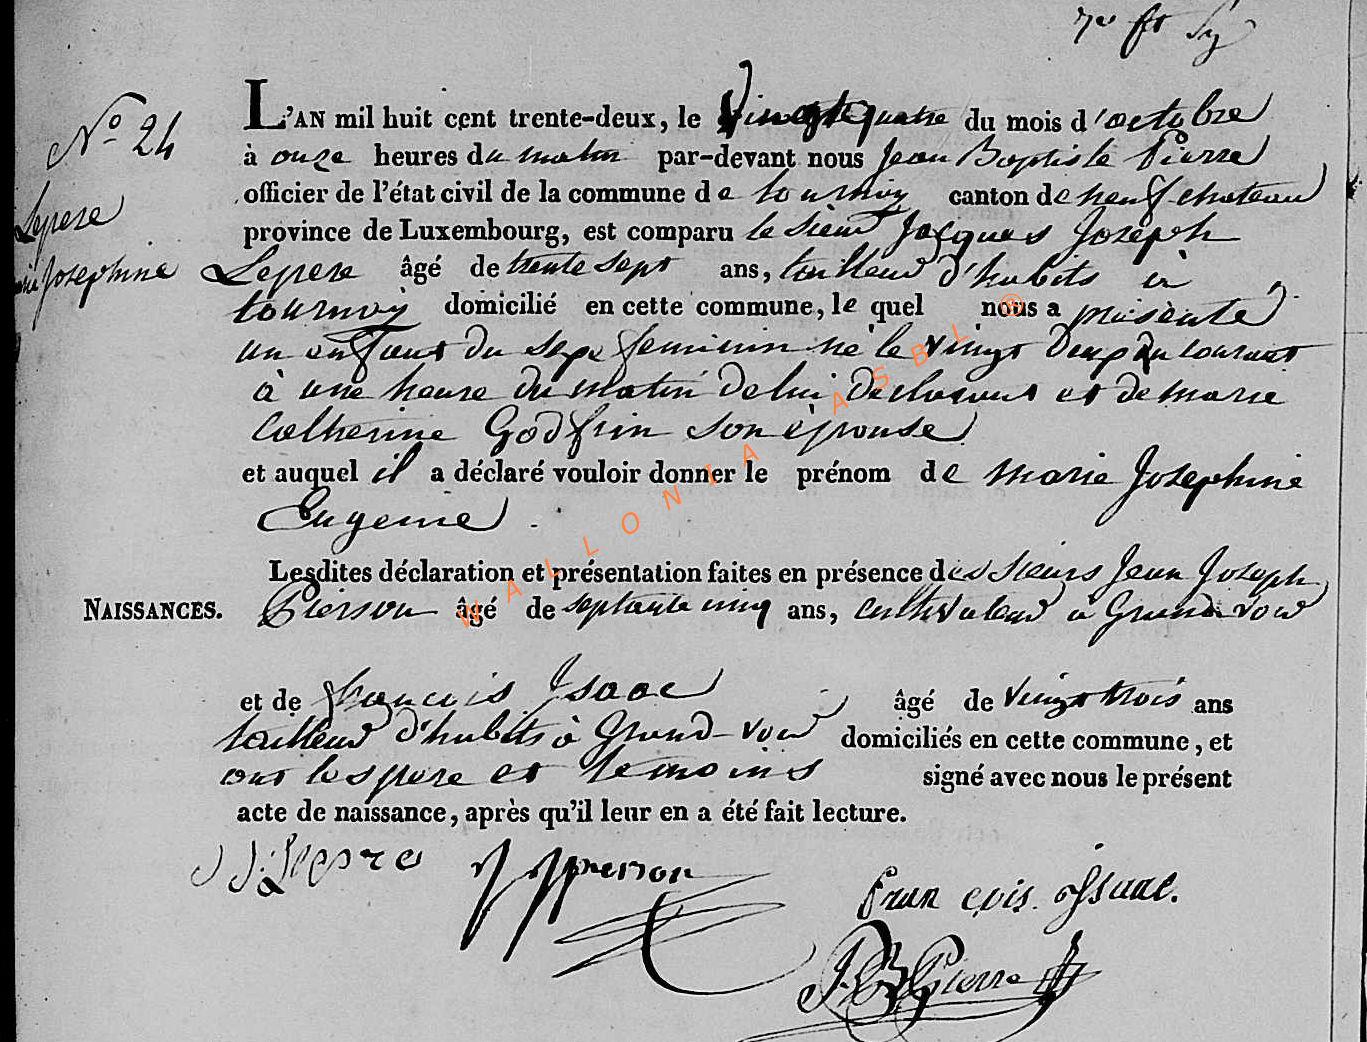 7e ft
N° 24
Lepere
Josephine
L'AN mil huit cent trente-deux, le Vingt quatre du mois d'octobre
à onze heures du matin par-devant nous Jean Baptiste Pierre
officier de l'état civil de la commune de tournay canton de neufchateau
province de Luxembourg, est comparu le sieur Jacques Joseph
Lepere âgé de trente sept ans, tailleur d'habits à
tournay domicilié en cette commune, le quel nous a présenté
un enfant du sexe feminin né le vingt deux du courant
à une heure du matin de lui déclarant et de marie
Catherine Godfrin son épouse
et auquel il a déclaré vouloir donner le prénom de marie Josephine
Eugenie.
Lesdites déclaration et présentation faites en présence des sieurs Jean Joseph
NAISSANCES. Pierson âgé de septante cinq ans, cultivateur à Grand-voir
et de françois Isaac âgé de vingt trois ans
tailleur d'habits à Grand-voir domiciliés en cette commune, et
ont les pere et temoins signé avec nous le présent
acte de naissance, après qu'il leur en a été fait lecture.
J J Lepere J J pierson
fran cois isaac.
J B Pierre
WALLONIA ASBL ®